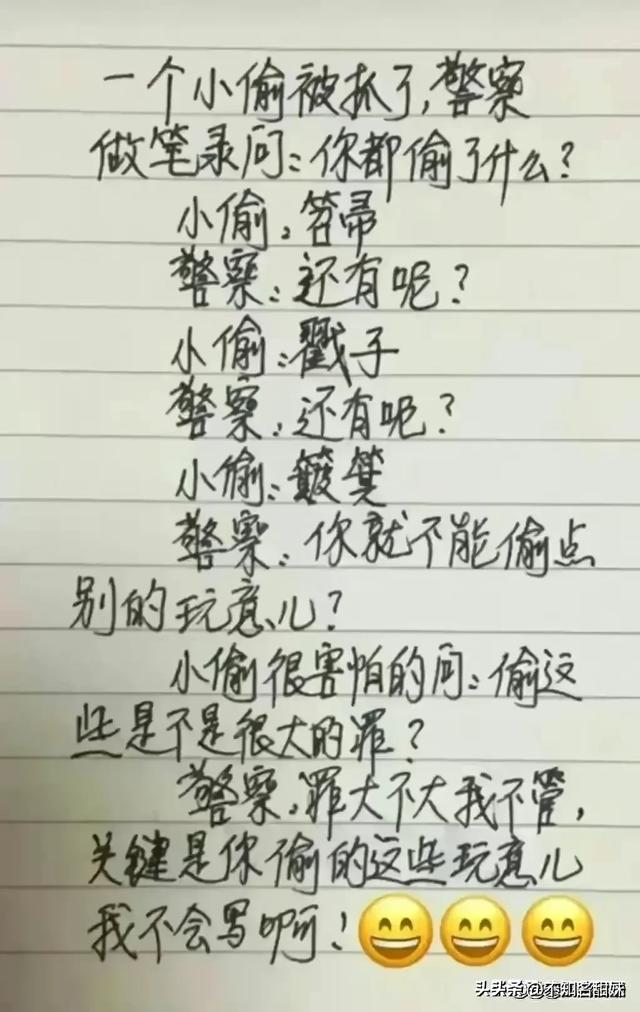 一个小偷被抓了,警察
做笔录问:你都偷了什么?
小偷:笤帚
警察:还有呢?
小偷:戳子
警察:还有呢?
小偷:簸箕
警察:你就不能偷点
别的玩意儿?
小偷很害怕的问:偷这
些是不是很大的罪?
警察:罪大不大我不管,
关键是你偷的这些玩意儿
我不会写啊!
头条 @不知名甜妹